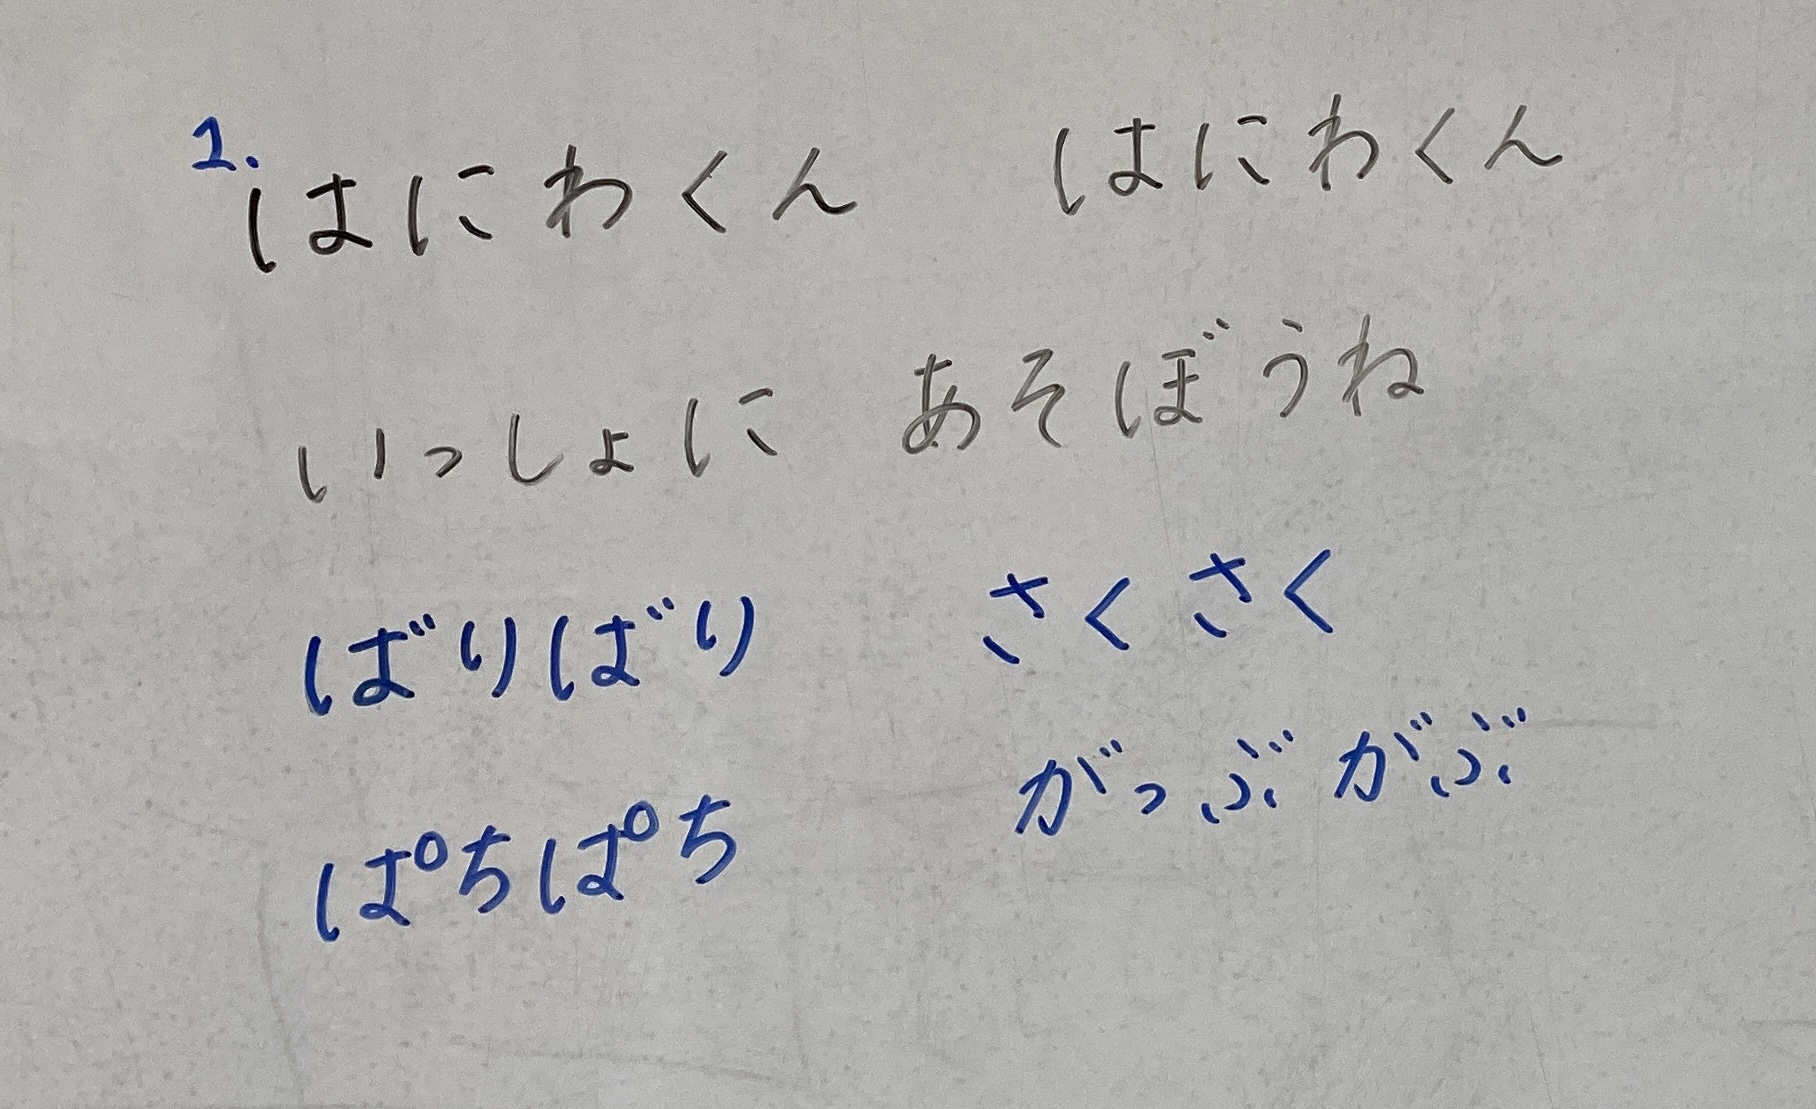 1. はにわくん はにわくん
いっしょに あそぼうね
ばりばり さくさく
ぱちぱち がっぶがぶ